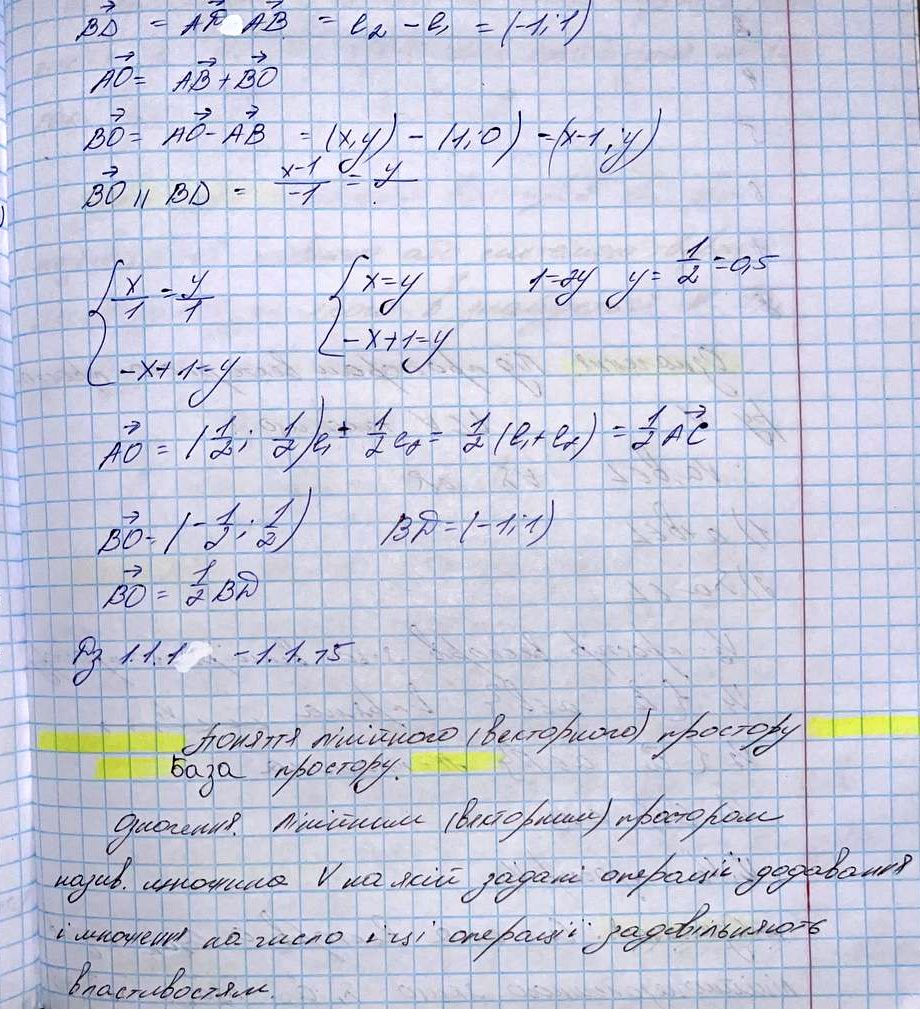 BD = AD AB = e₂ - e₁ = (-1;1)
AO = AB + BO
BO = AO - AB = (x,y) - (1;0) = (x-1;y)
BO || BD = (x-1)/-1 = y/
{ x/1 = y/1 { x=y 1=2y y= 1/2 = 0,5
-x+1=y -x+1=y
AO = (1/2; 1/2)e₁ + 1/2 e₂ = 1/2 (e₁+e₂) = 1/2 AC
BO = (-1/2; 1/2) BD = (-1;1)
BO = 1/2 BD
Дз 1.1.1 - 1.1.15
Поняття лінійного (векторного) простору
База простору.
Означення. Лінійним (векторним) простором
назив. множина V на якій задані операції додавання
і множення на число і ці операції задовільняють
властивостям.